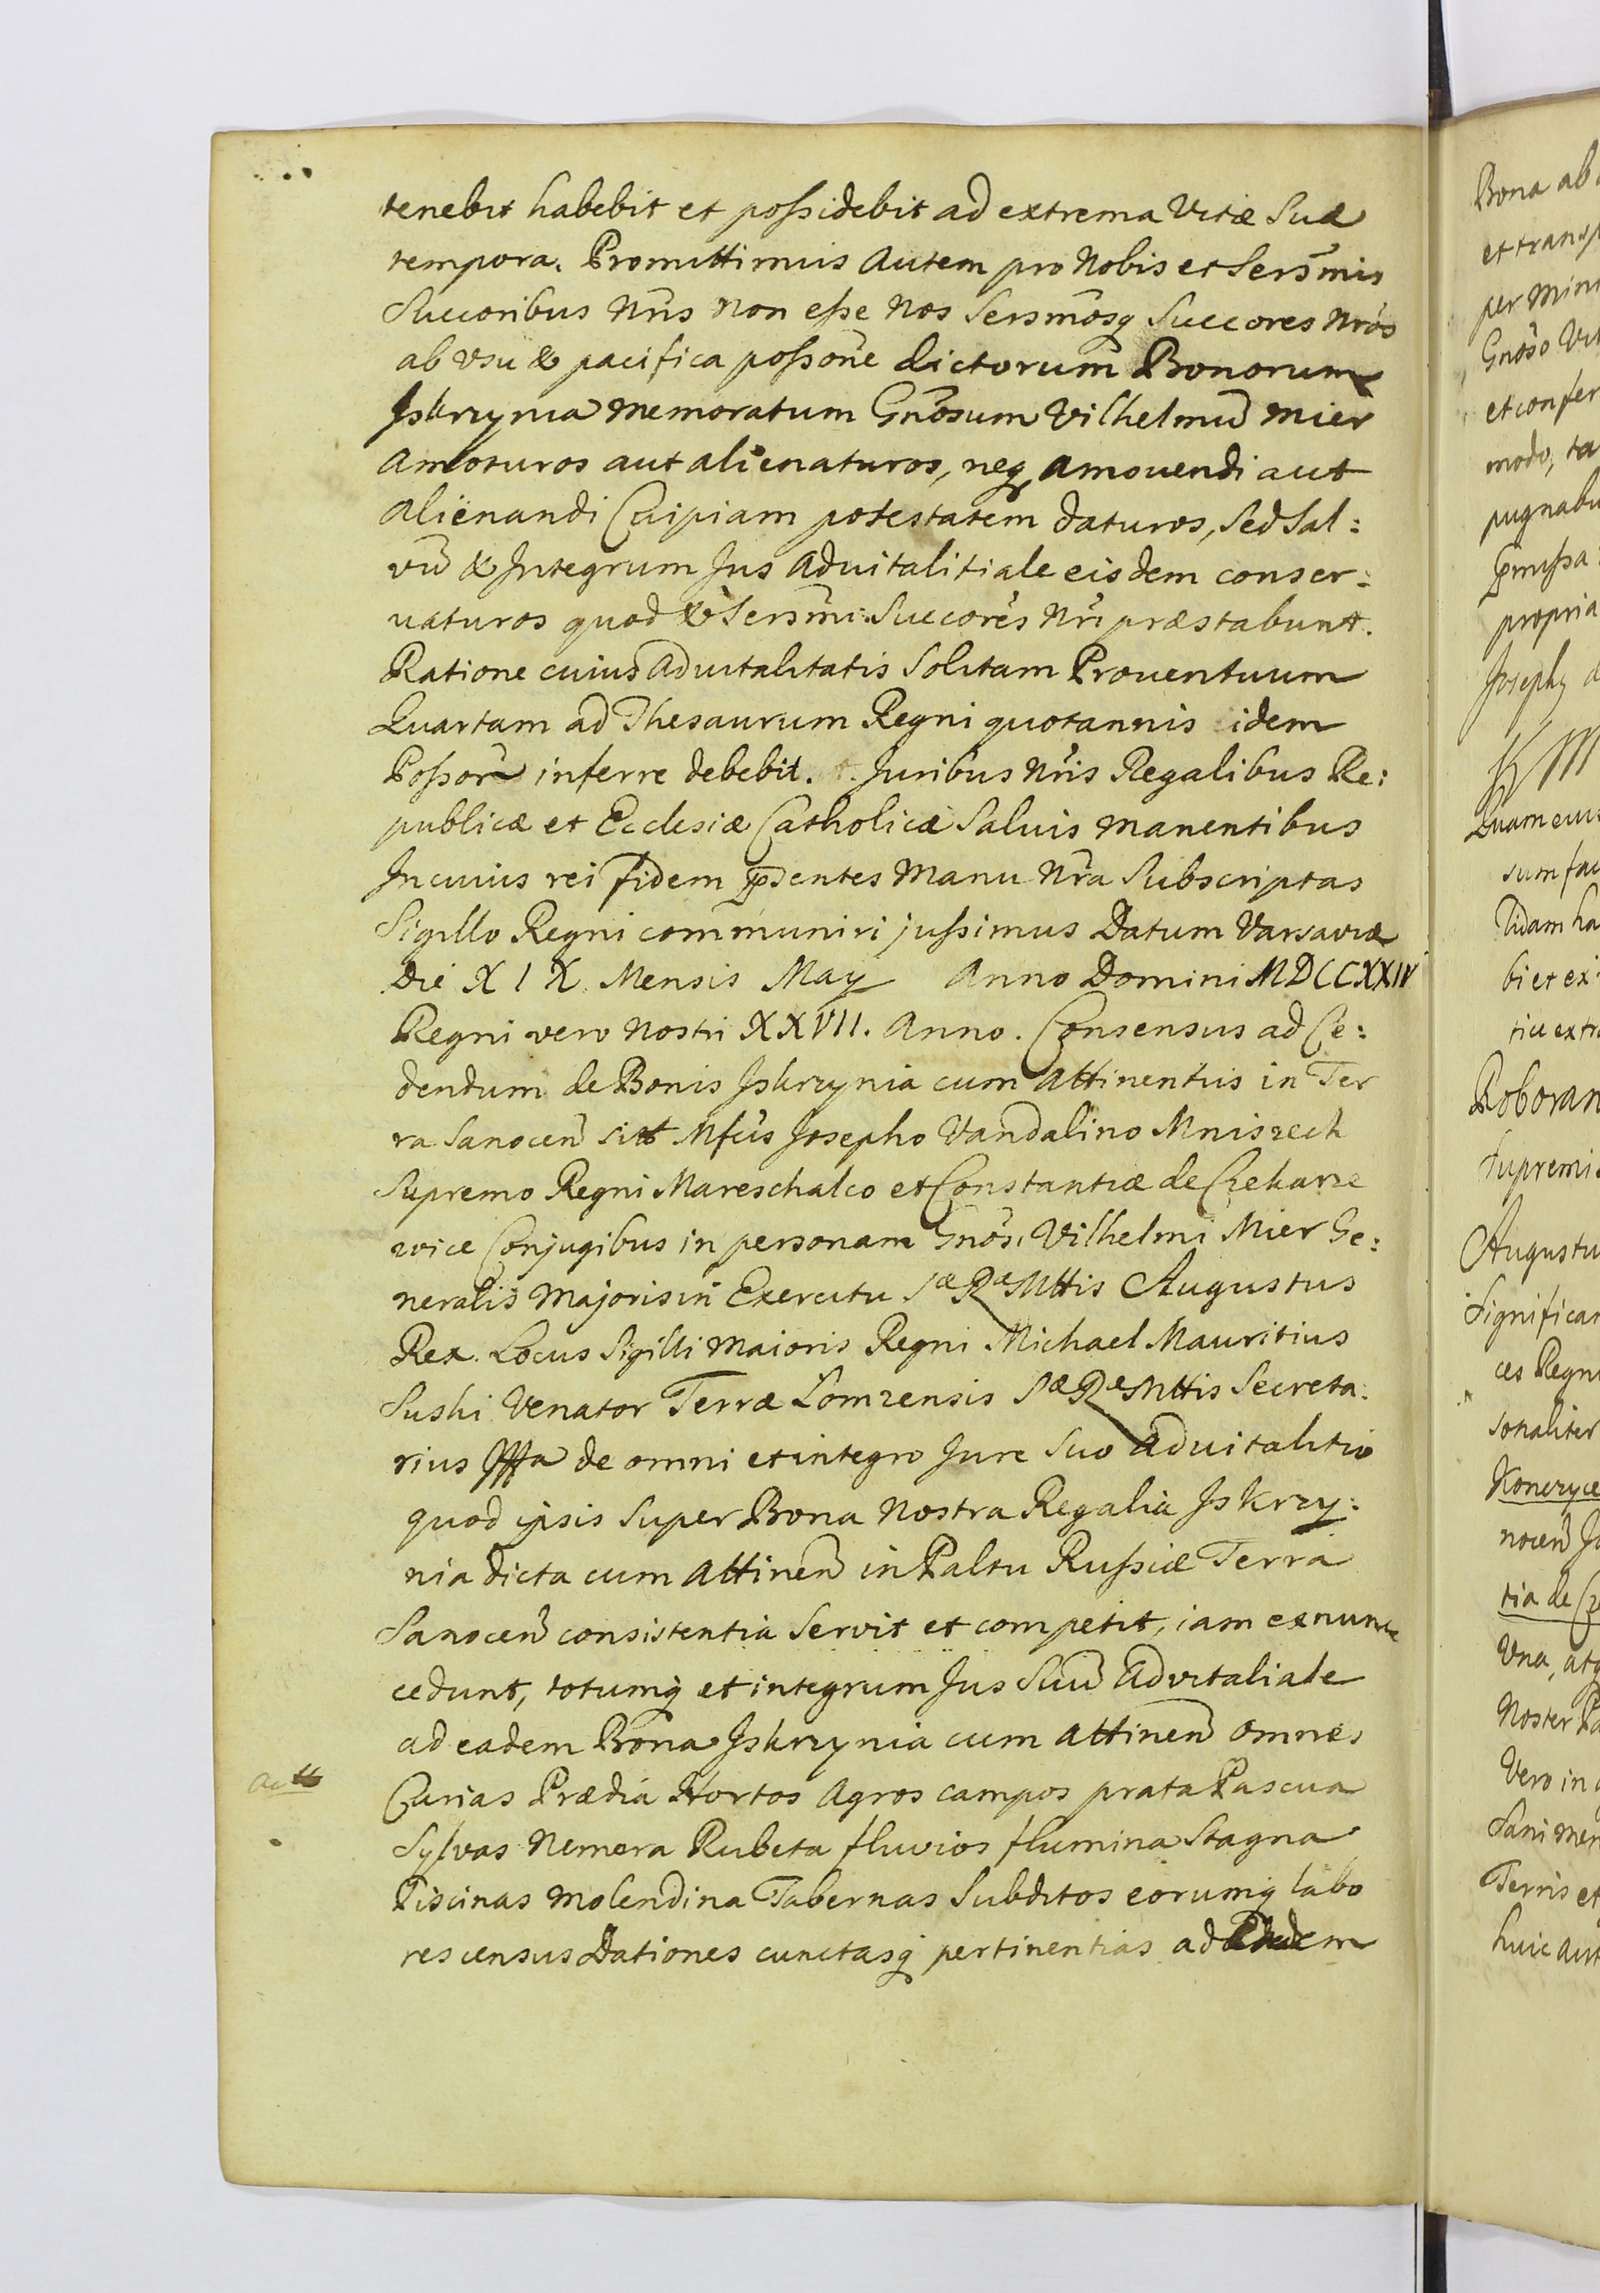 tenebit habebit et possidebit ad extrema Vitæ Suæ
tempora. Promittimus Autem pro Nobis et Sersmis
Succoribus Nris Non esse Nos Sersmosq Succores Nros
ab Vsu & pacifica possone dictorum Bonorum
Iskrzynia memoratum Gnosum Vilhelmu Mier
Amoturos aut alienaturos, neq amouendi aut
Alienandi Cuipiam potestatem daturos, Sed Sal:
vu & Integrum Jus Aduitalitiale eisdem conser:
uaturos quod & Sersmi Succores Nri præstabunt.
Ratione cuius Aduitalitatis Solitam Prouentuum
Quartam ad Thesaurum Regni quotannis idem
Possor inferre debebit. Juribus Nris Regalibus Re:
publicæ et Ecclesiæ Catholicæ Saluis manentibus
In cuius rei fidem pntes Manu Nra Subscriptas
Sigillo Regni communiri jussimus Datum Varsaviæ
Die XIX Mensis May Anno Domini MDCCXXIV
Regni vero Nostri XXVII. Anno. Consensus ad Ce:
dendum de Bonis Iskrzynia cum Attinentiis in Ter
ra Sanocen sitt Mfcis Josepho Vandalino Mniszech
Supremo Regni Mareschalco et Constantiæ de
Conjugibus in personam Gnosi Vilhelmi Mier Ge:
neralis Majoris in Exercitu Sæ Ræ Mttis Augustus
Rex. Locus Sigilli maioris Regni Michael Mauritius
Suski Venator Terræ Lomzensis Sæ Ræ Mttis Secreta:
rius de omni et integro Jure Suo Aduitalitio
quod ipsis Super Bona Nostra Regalia Iskrzy:
nia dicta cum Attinen in Paltu Russiæ Terra
Sanocen consistentia Servit et competit, iam exnunc
cedunt, totumq et integrum Jus Suu Advitaliale
ad eadem Bona Iskrzynia cum Attinen omnes
Actt
Curias Prædia Hortos Agros campos prata Pascua
Sylvas Nemora Rubeta fluvios flumina Stagna
Piscinas Molendina Tabernas Subditos eorumq labo
res census Dationes cunctasq pertinentias ad Eadem
Bona ab
et trans
per
Gnoso
et confer
modo, ta
pugnabu
propria
Josephq
Quam cuius
sum
ha
bi et ex
extra
Roboran
Supremi
Augustu
Significam
ces Regni
sonaliter
nocen
tia de
Vna, atq
Noster
Vero in
Sani men
Terris et
huic aut